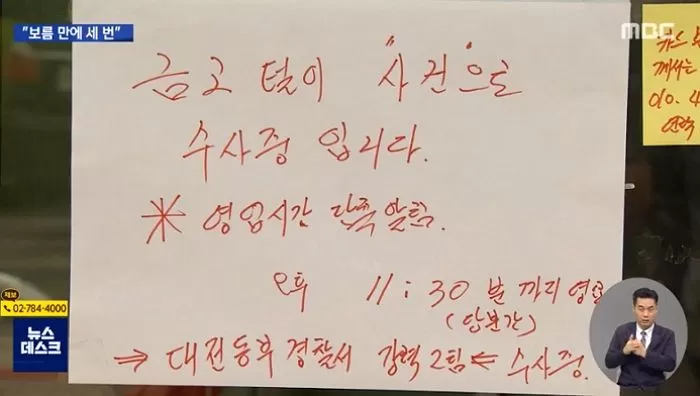 "보름 만에 세 번"
MBC
금고 털이 "사건"으로
수사중 입니다.
※ 영업시간 단축 알림.
오후 11:30분 까지 영업
(당분간)
⇒ 대전동부 경찰서 강력2팀 ⇐ 수사중.
께서는
010. 4
연락
제보 02-784-4000
뉴스
데스크